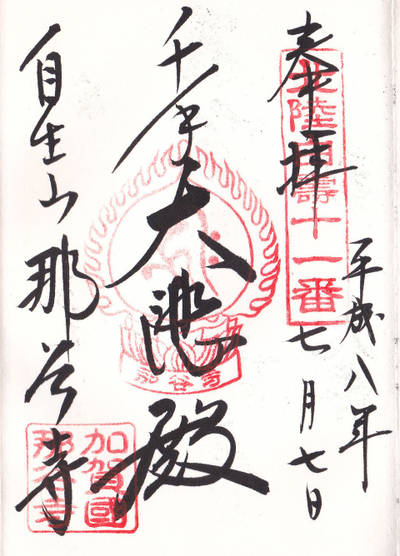 平成八年
奉拝 七月七日
北陸白壽十一番
千手大悲殿
那谷寺
自生山那谷寺
加賀國
那谷寺